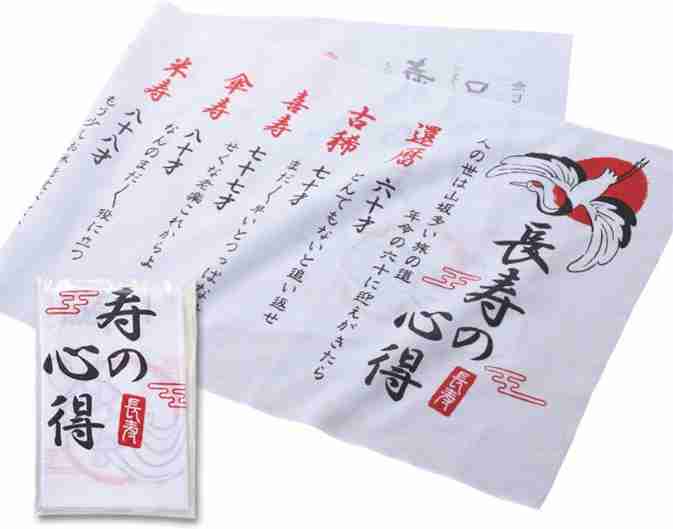 長寿の心得
長寿
人の世は山坂多い旅の道
年命の六十に迎えがきたら
還暦
六十才
とんでもないと追い返せ
古稀
七十才
まだまだ早いとつっぱな
喜寿
七十七才
せくな老楽これからよ
傘寿
八十才
なんのまだまだ役に立つ
米寿
八十八才
もう少しお米を
寿の
心得
長寿